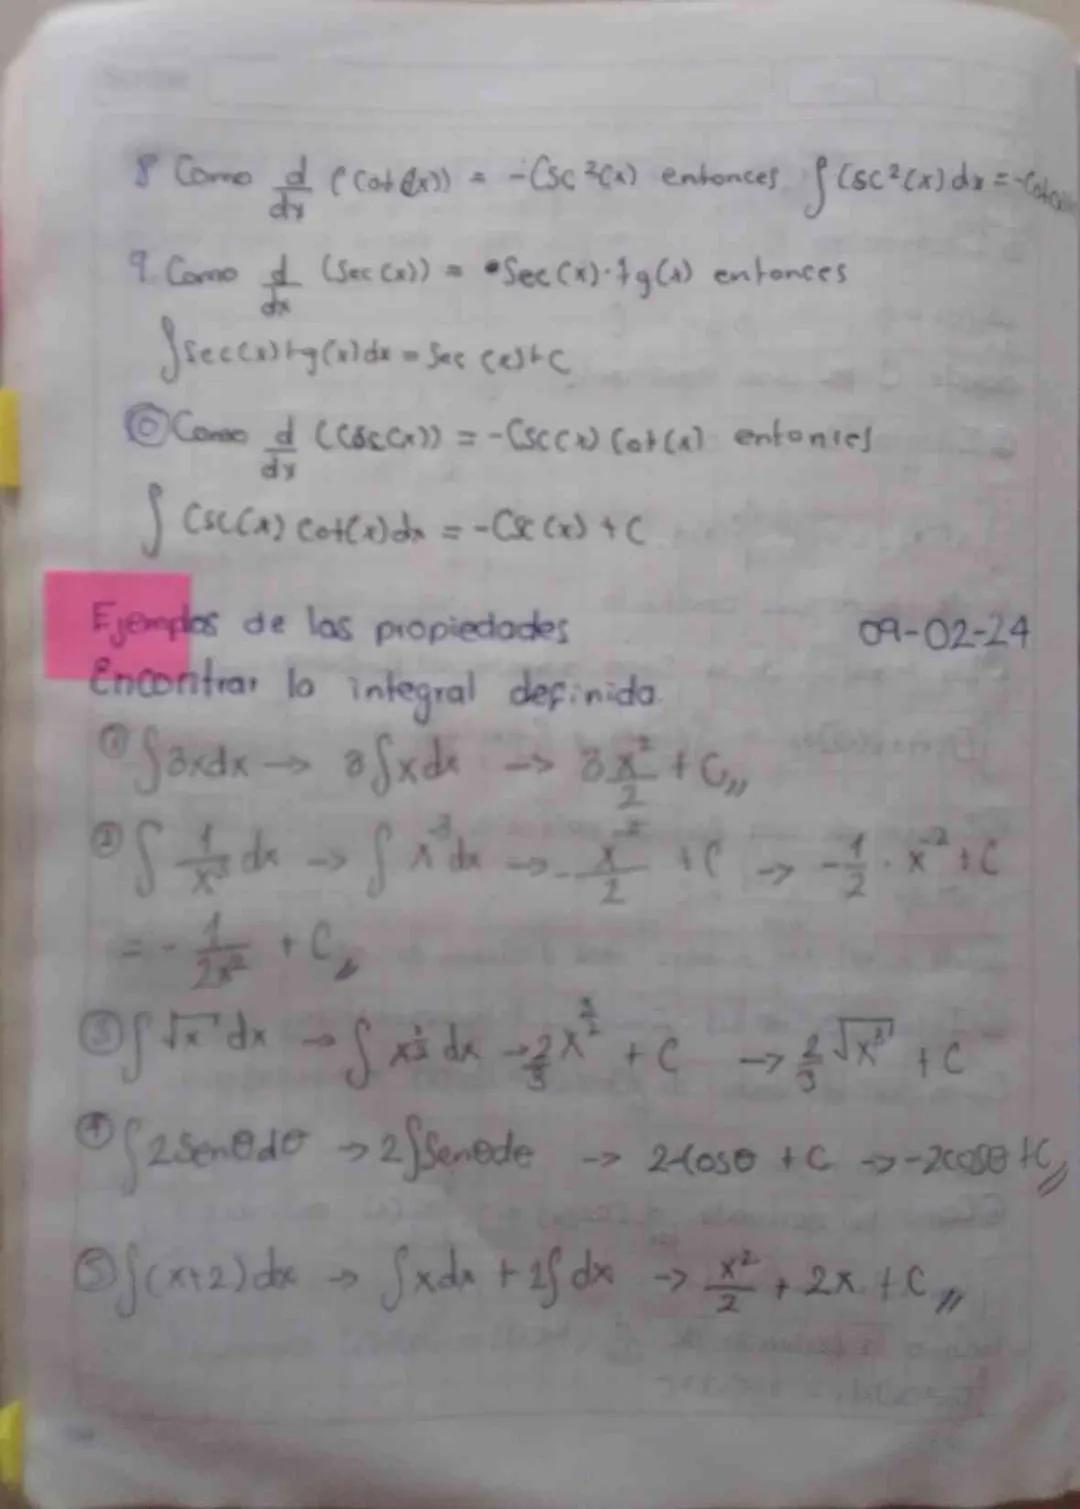 8 Como d/dx (Cot(x)) = -Csc²(x) entonces ∫Csc²(x)dx = -Cot(x)
9. Como d/dx (Sec(x)) = Sec(x)·tg(x) entonces
∫Sec(x)tg(x)dx = Sec(x)+C
10 Como d/dx (Csc(x)) = -Csc(x) Cot(x) entonces
∫ Csc(x) Cot(x)dx = -Csc(x) + C
Ejemplos de las propiedades 09-02-24
Encontrar la integral definida.
① ∫3xdx → 3∫xdx → 3x²/2 + C,,
② ∫ 1/x³ dx → ∫ x⁻³dx → -x⁻²/2 + C → -1/2 · x⁻² + C
= - 1/2x² + C,,
③ ∫√x dx → ∫ x^1/2 dx → 2/3 x^3/2 + C → 2/3 √x³ + C
④ ∫2Senθdθ → 2∫Senθdθ → 2-Cosθ + C → -2cosθ + C,,
⑤ ∫(x+2)dx → ∫xdx + 2∫dx → x²/2 + 2x + C,,